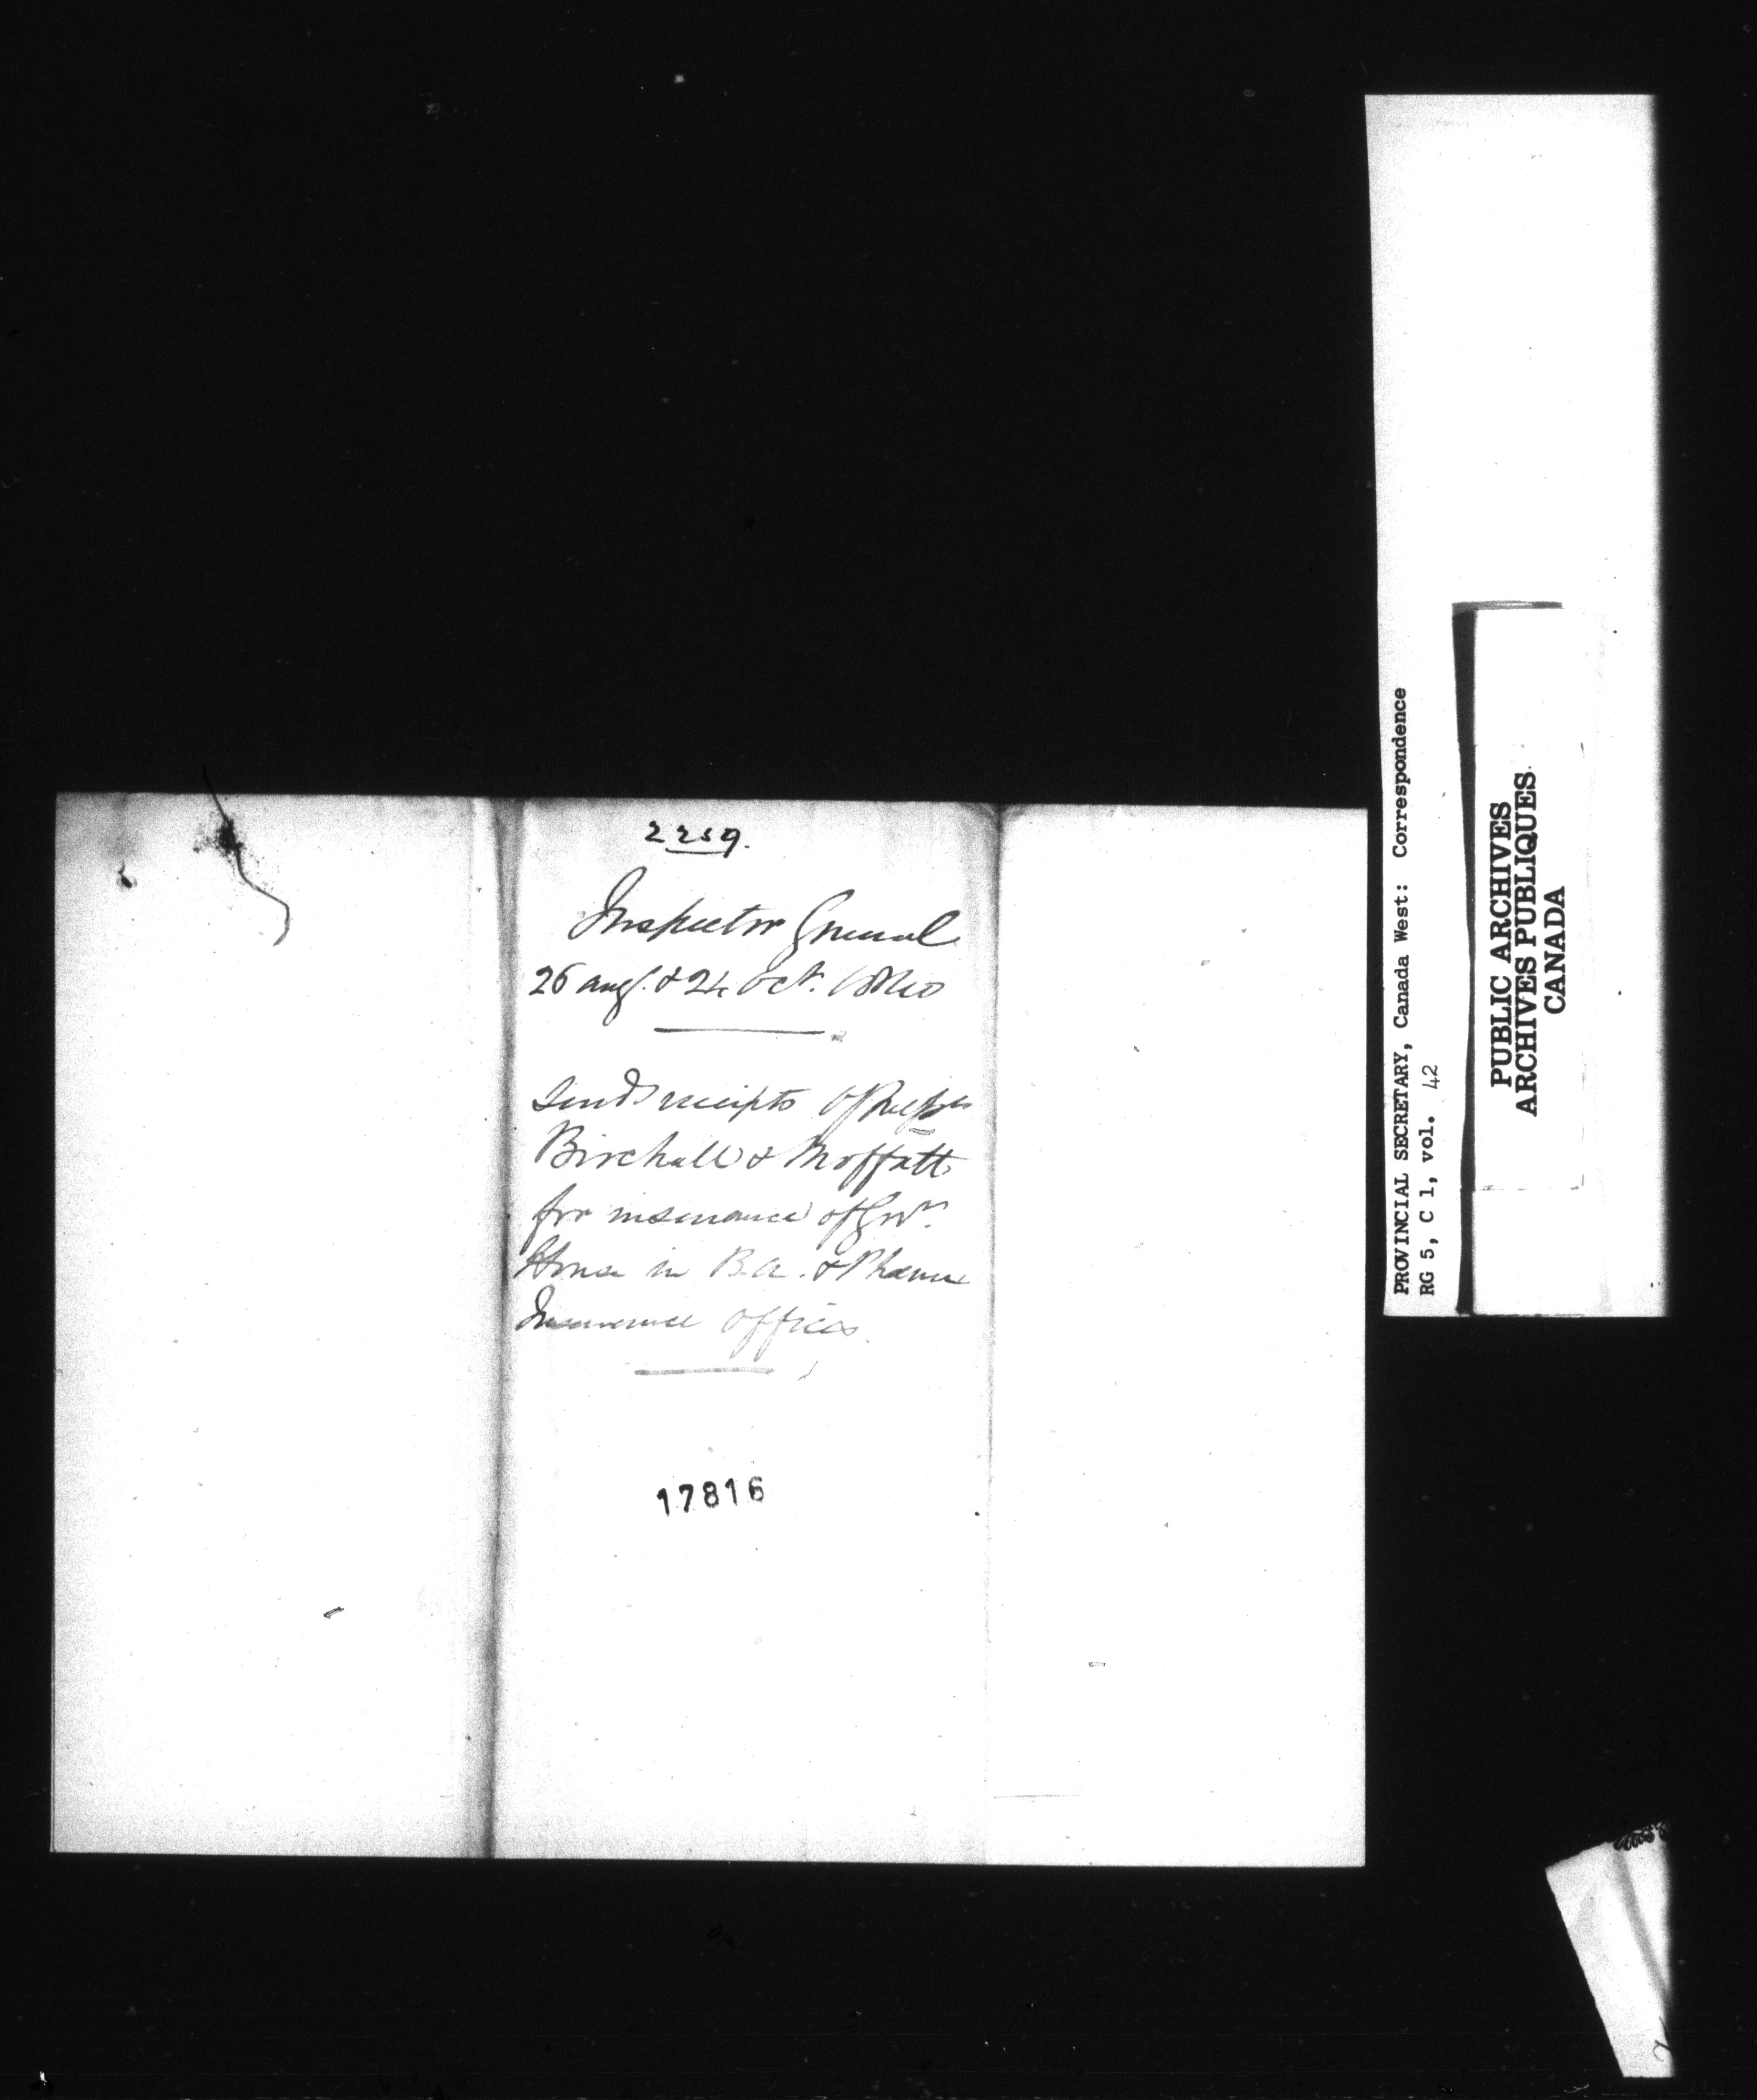 2259.
Inspector General
26 Augt. & 24 Oct. 1840
Sends receipts of Messrs
Birchall & Moffatt
for insurance of Govt.
House in B.A. & Phœnix
Insurance Offices.
17816
PROVINCIAL SECRETARY, Canada West: Correspondence
RG 5, C 1, vol. 42
PUBLIC ARCHIVES
ARCHIVES PUBLIQUES
CANADA